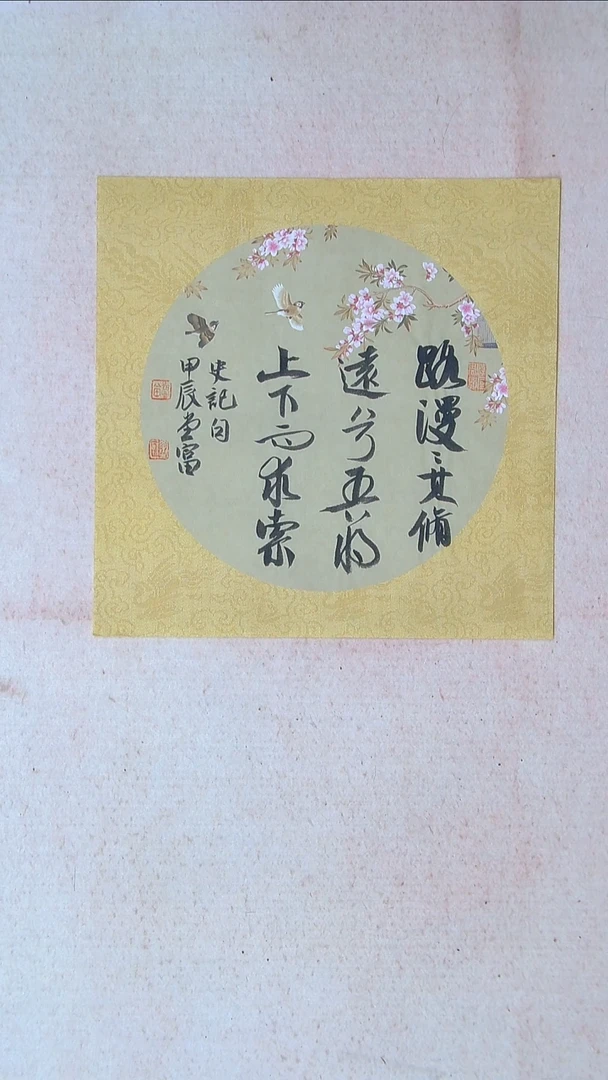 路漫〻其脩
遠兮吾将
上下而求索
史記句
甲辰堂富